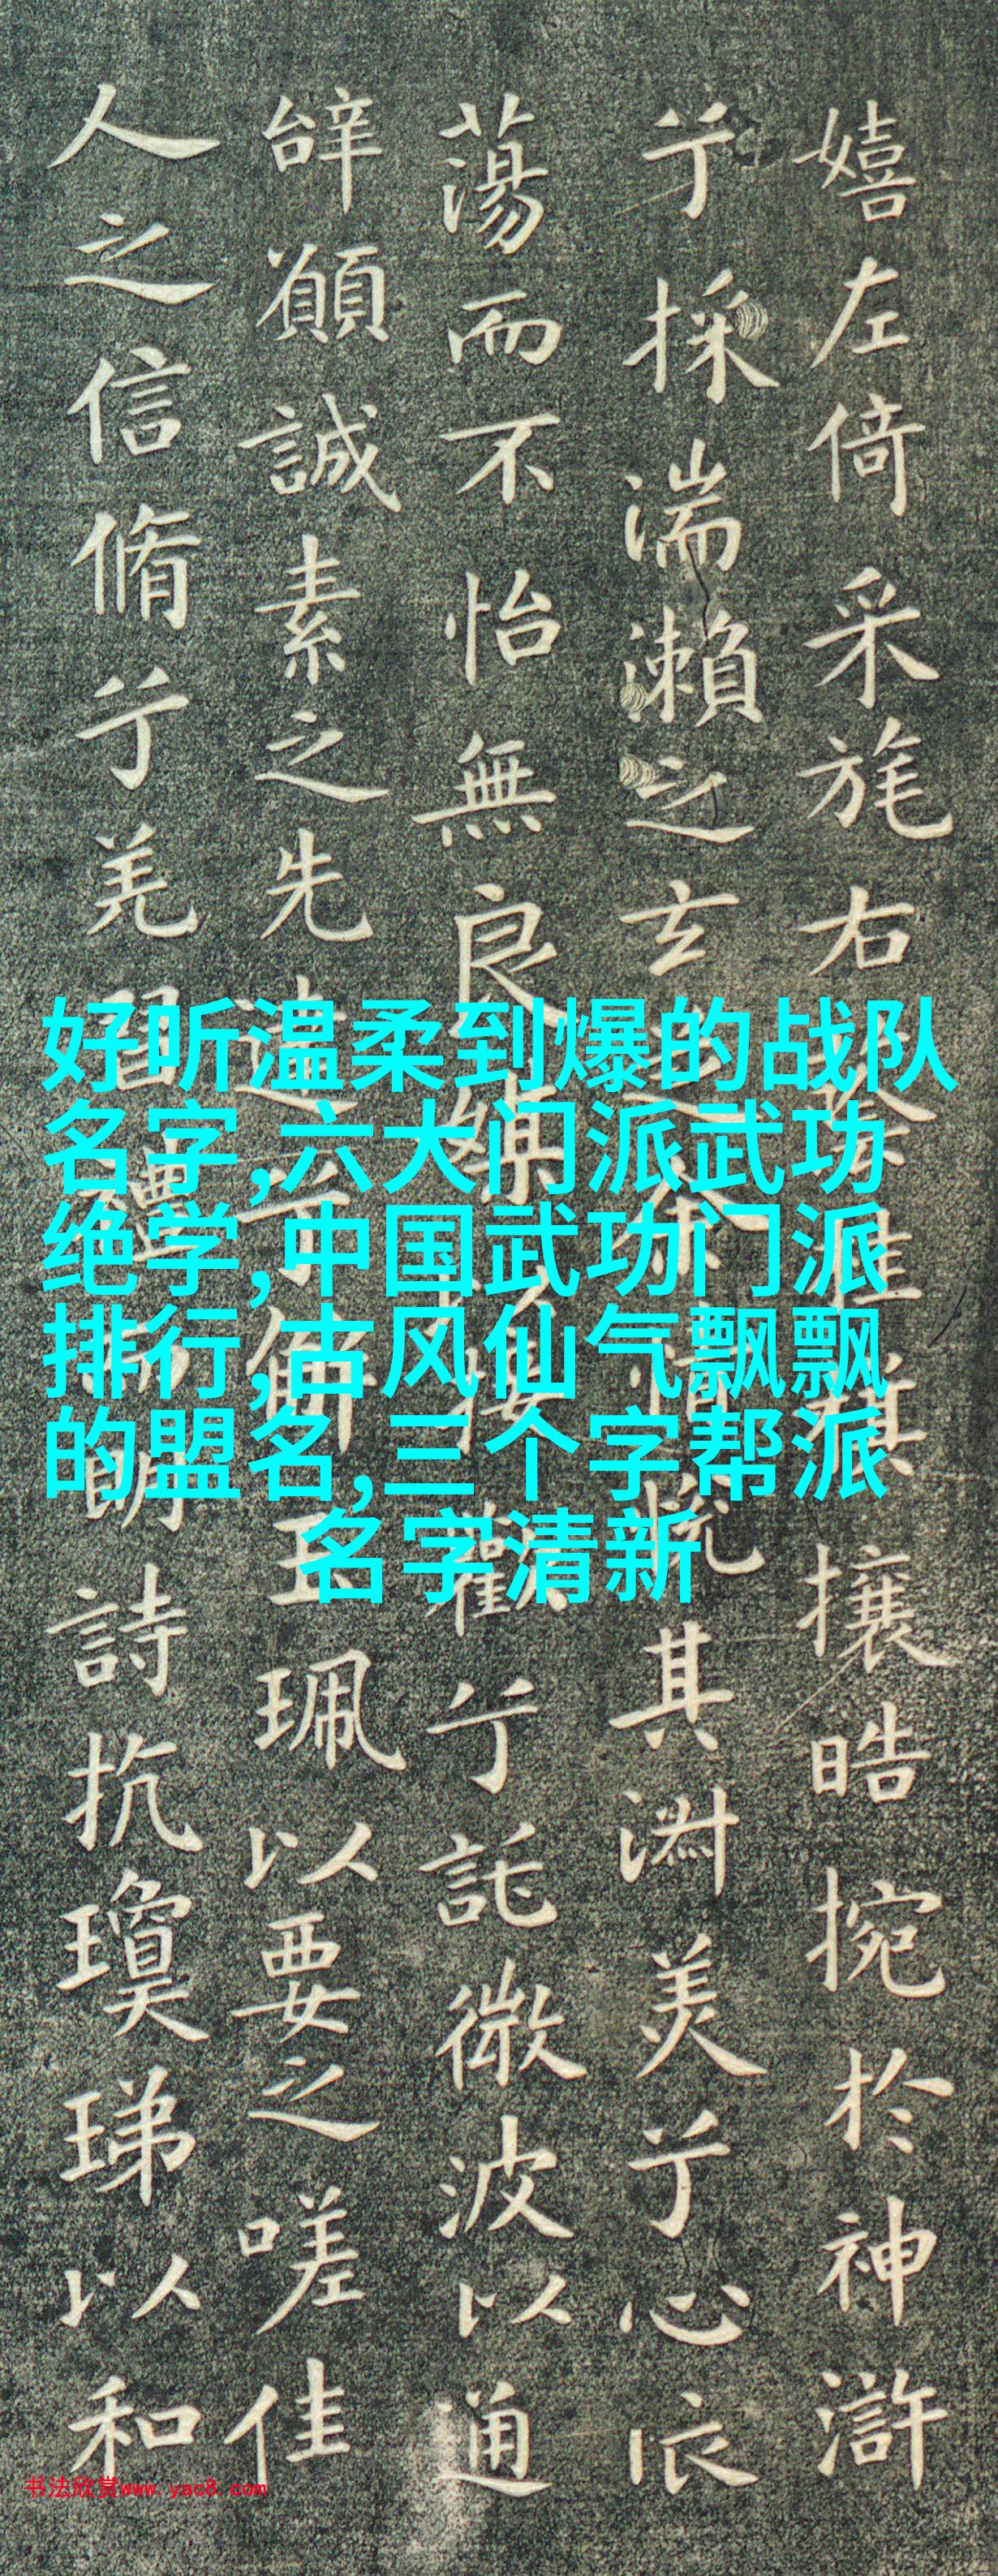 嬉左倚采旄右桂旗攘皓捥於神滸
兮採湍瀨之玄芝余情悅其淑美兮心
蕩而不怡無良媒以接懽兮託微波以通
辝願誠素之先達兮解玉珮以要之嗟佳
人之信脩兮羌習禮而明詩抗瓊珶以和
好听温柔到爆的战队
名字,六大门派武功
绝学,中国武功门派
排行,古风仙气飘飘
的盟名,三个字帮派
名字清新
书法欣赏www.yac8.com